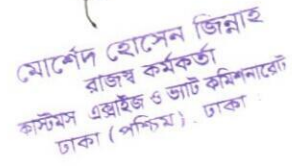 মোর্শেদ হোসেন জিন্নাহ
রাজস্ব কর্মকর্তা
কাস্টমস এক্সাইজ ও ভ্যাট কমিশনারেট
ঢাকা (পশ্চিম). ঢাকা